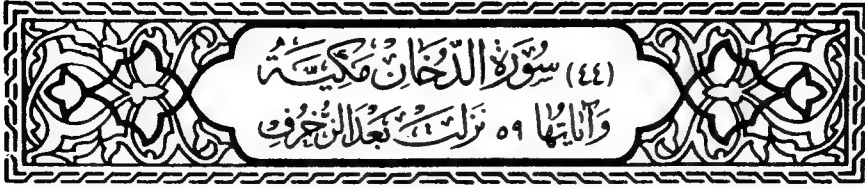 (٤٤) سُورَةُ الدُّخَانِ مَكِّيَّةٌ
وَآيَاتُهَا ٥٩ نَزَلَتْ بَعْدَ الزُّخْرُفِ